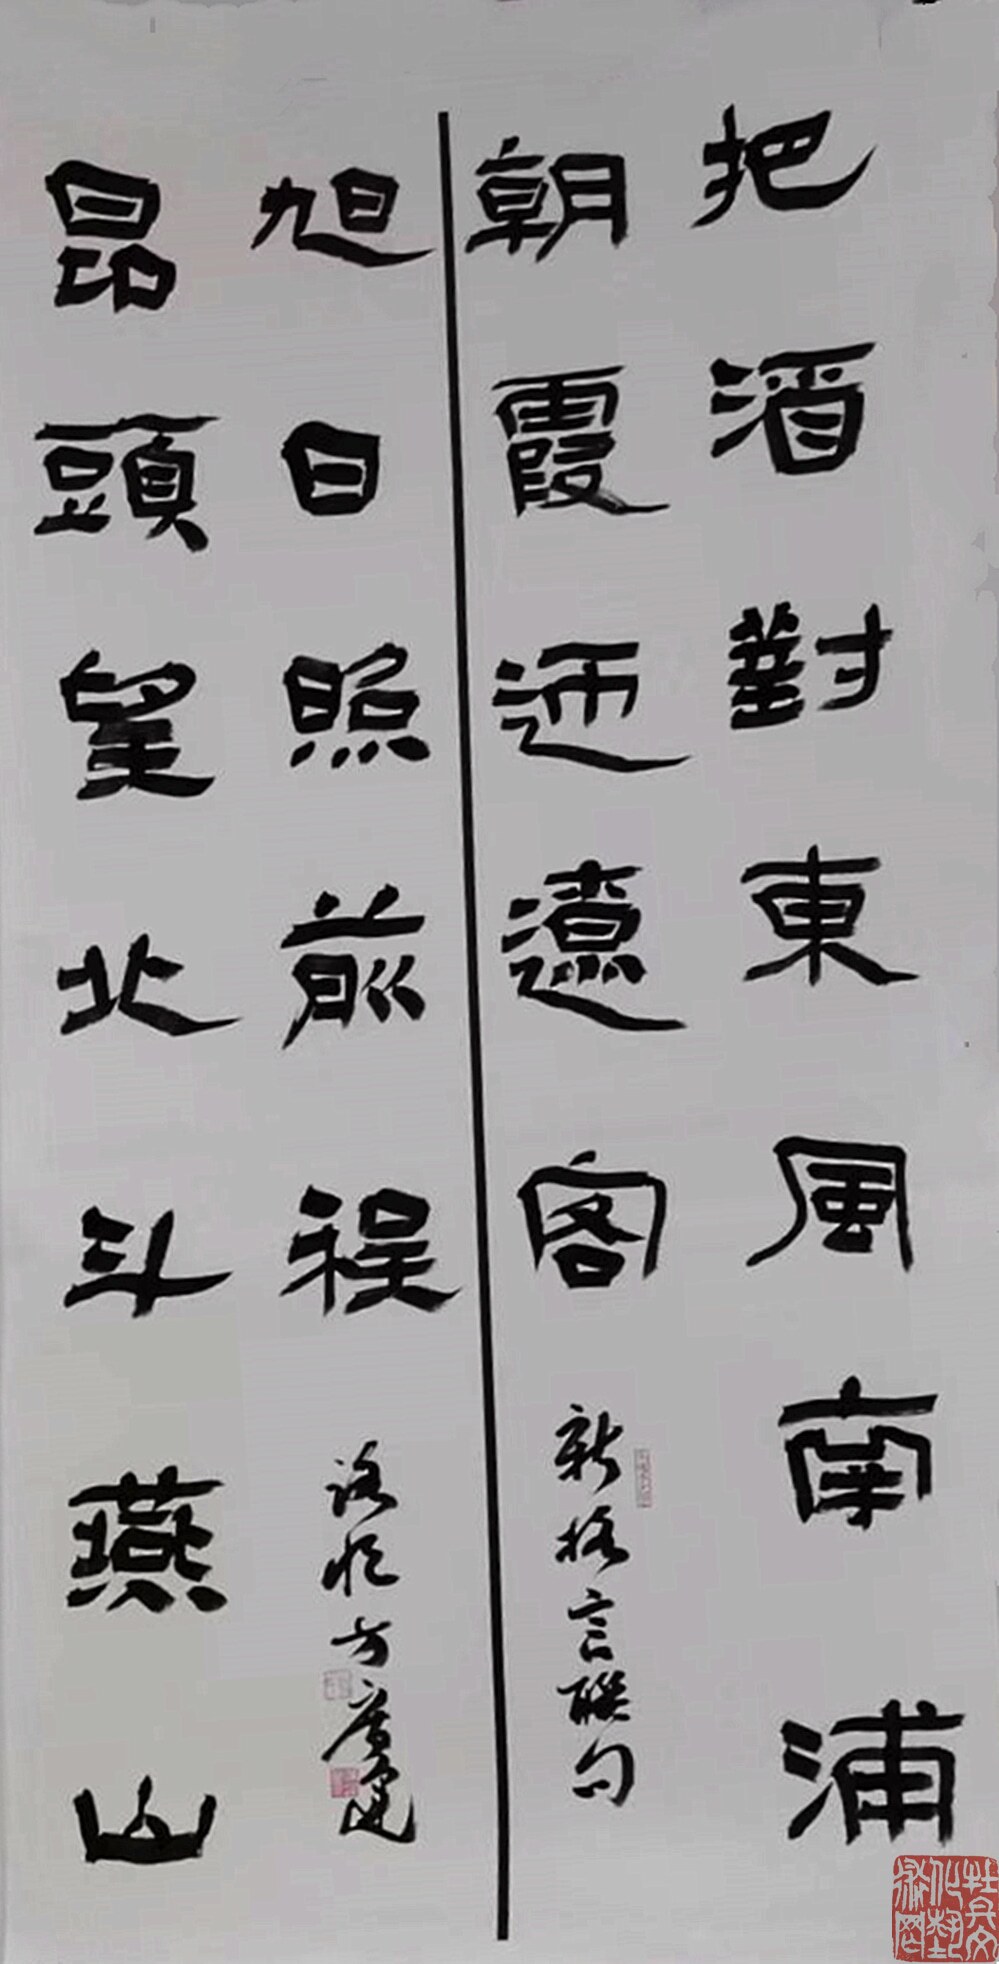 把酒對東風南浦
朝霞迊遠客
新格言聯句
昂頭望北斗燕山
旭日照前程
方广建